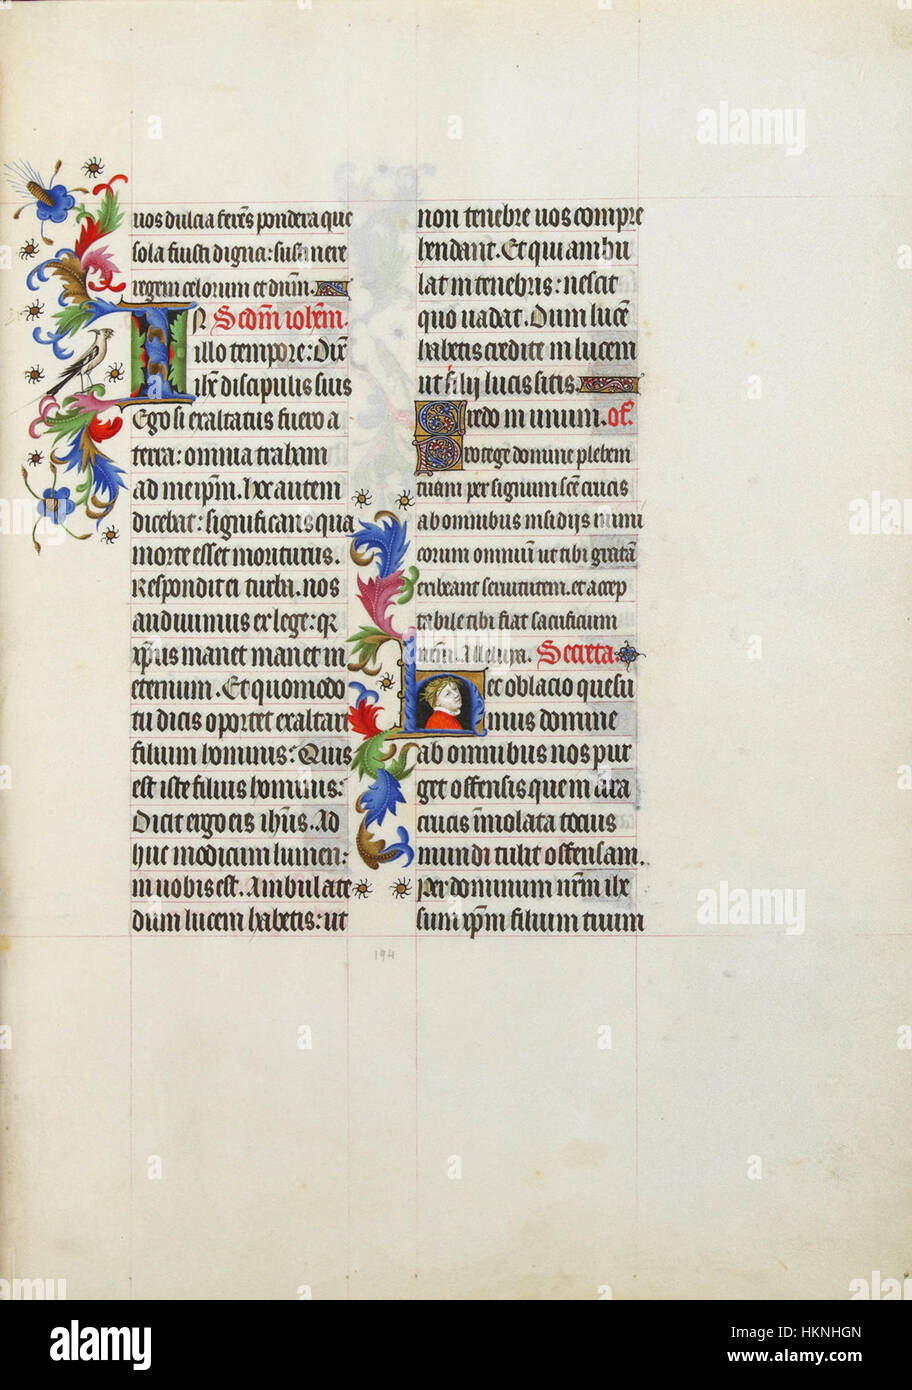 uos dulcia ferēs pondera que
sola fuisti digna: sustinere
regem celorum et dnm̄.
IN Scdm̄ iohēm.
illo tempore: Dix̄
ihc̄ discipulis suis
Ego si exaltatus fuero a
terra: omnia traham
ad meipm̄. hoc autem
dicebat: significans qua
morte esset moriturus.
Respondit ei turba. nos
audiuimus ex lege: qr̄
xp̄us manet manet in
eternum. Et quomodo
tu dicis oportet exaltari
filium hominis: Quis
est iste filius hominis:
Dicit ergo eis ihūs. Ad
huc modicum lumen:
in uobis est. Ambulate
dum lucem habetis: ut
non tenebre uos compre
hendant. Et qui ambu
lat in tenebris: nescit
quo uadat. Dum lucē
habetis credite in lucem
ut filij lucis sitis.
Credo in unum. of.
Protege domine plebem
tuam per signum scē crucis
ab omnibus insidijs inimi
corum omniū ut tibi gratā
exibeant seruitutem. et accep
tabile tibi fiat sacificium
nrm̄. Alleluya. Secreta.
Hec oblacio quesu
mus domine
ab omnibus nos pur
get offensis que in ara
crucis īmolata tocius
mundi tulit offensam.
Per dominum nrm̄ ihe
sum xpm̄ filium tuum
194
alamy
a
alamy
www.alamy.com
Image ID: HKNHGN